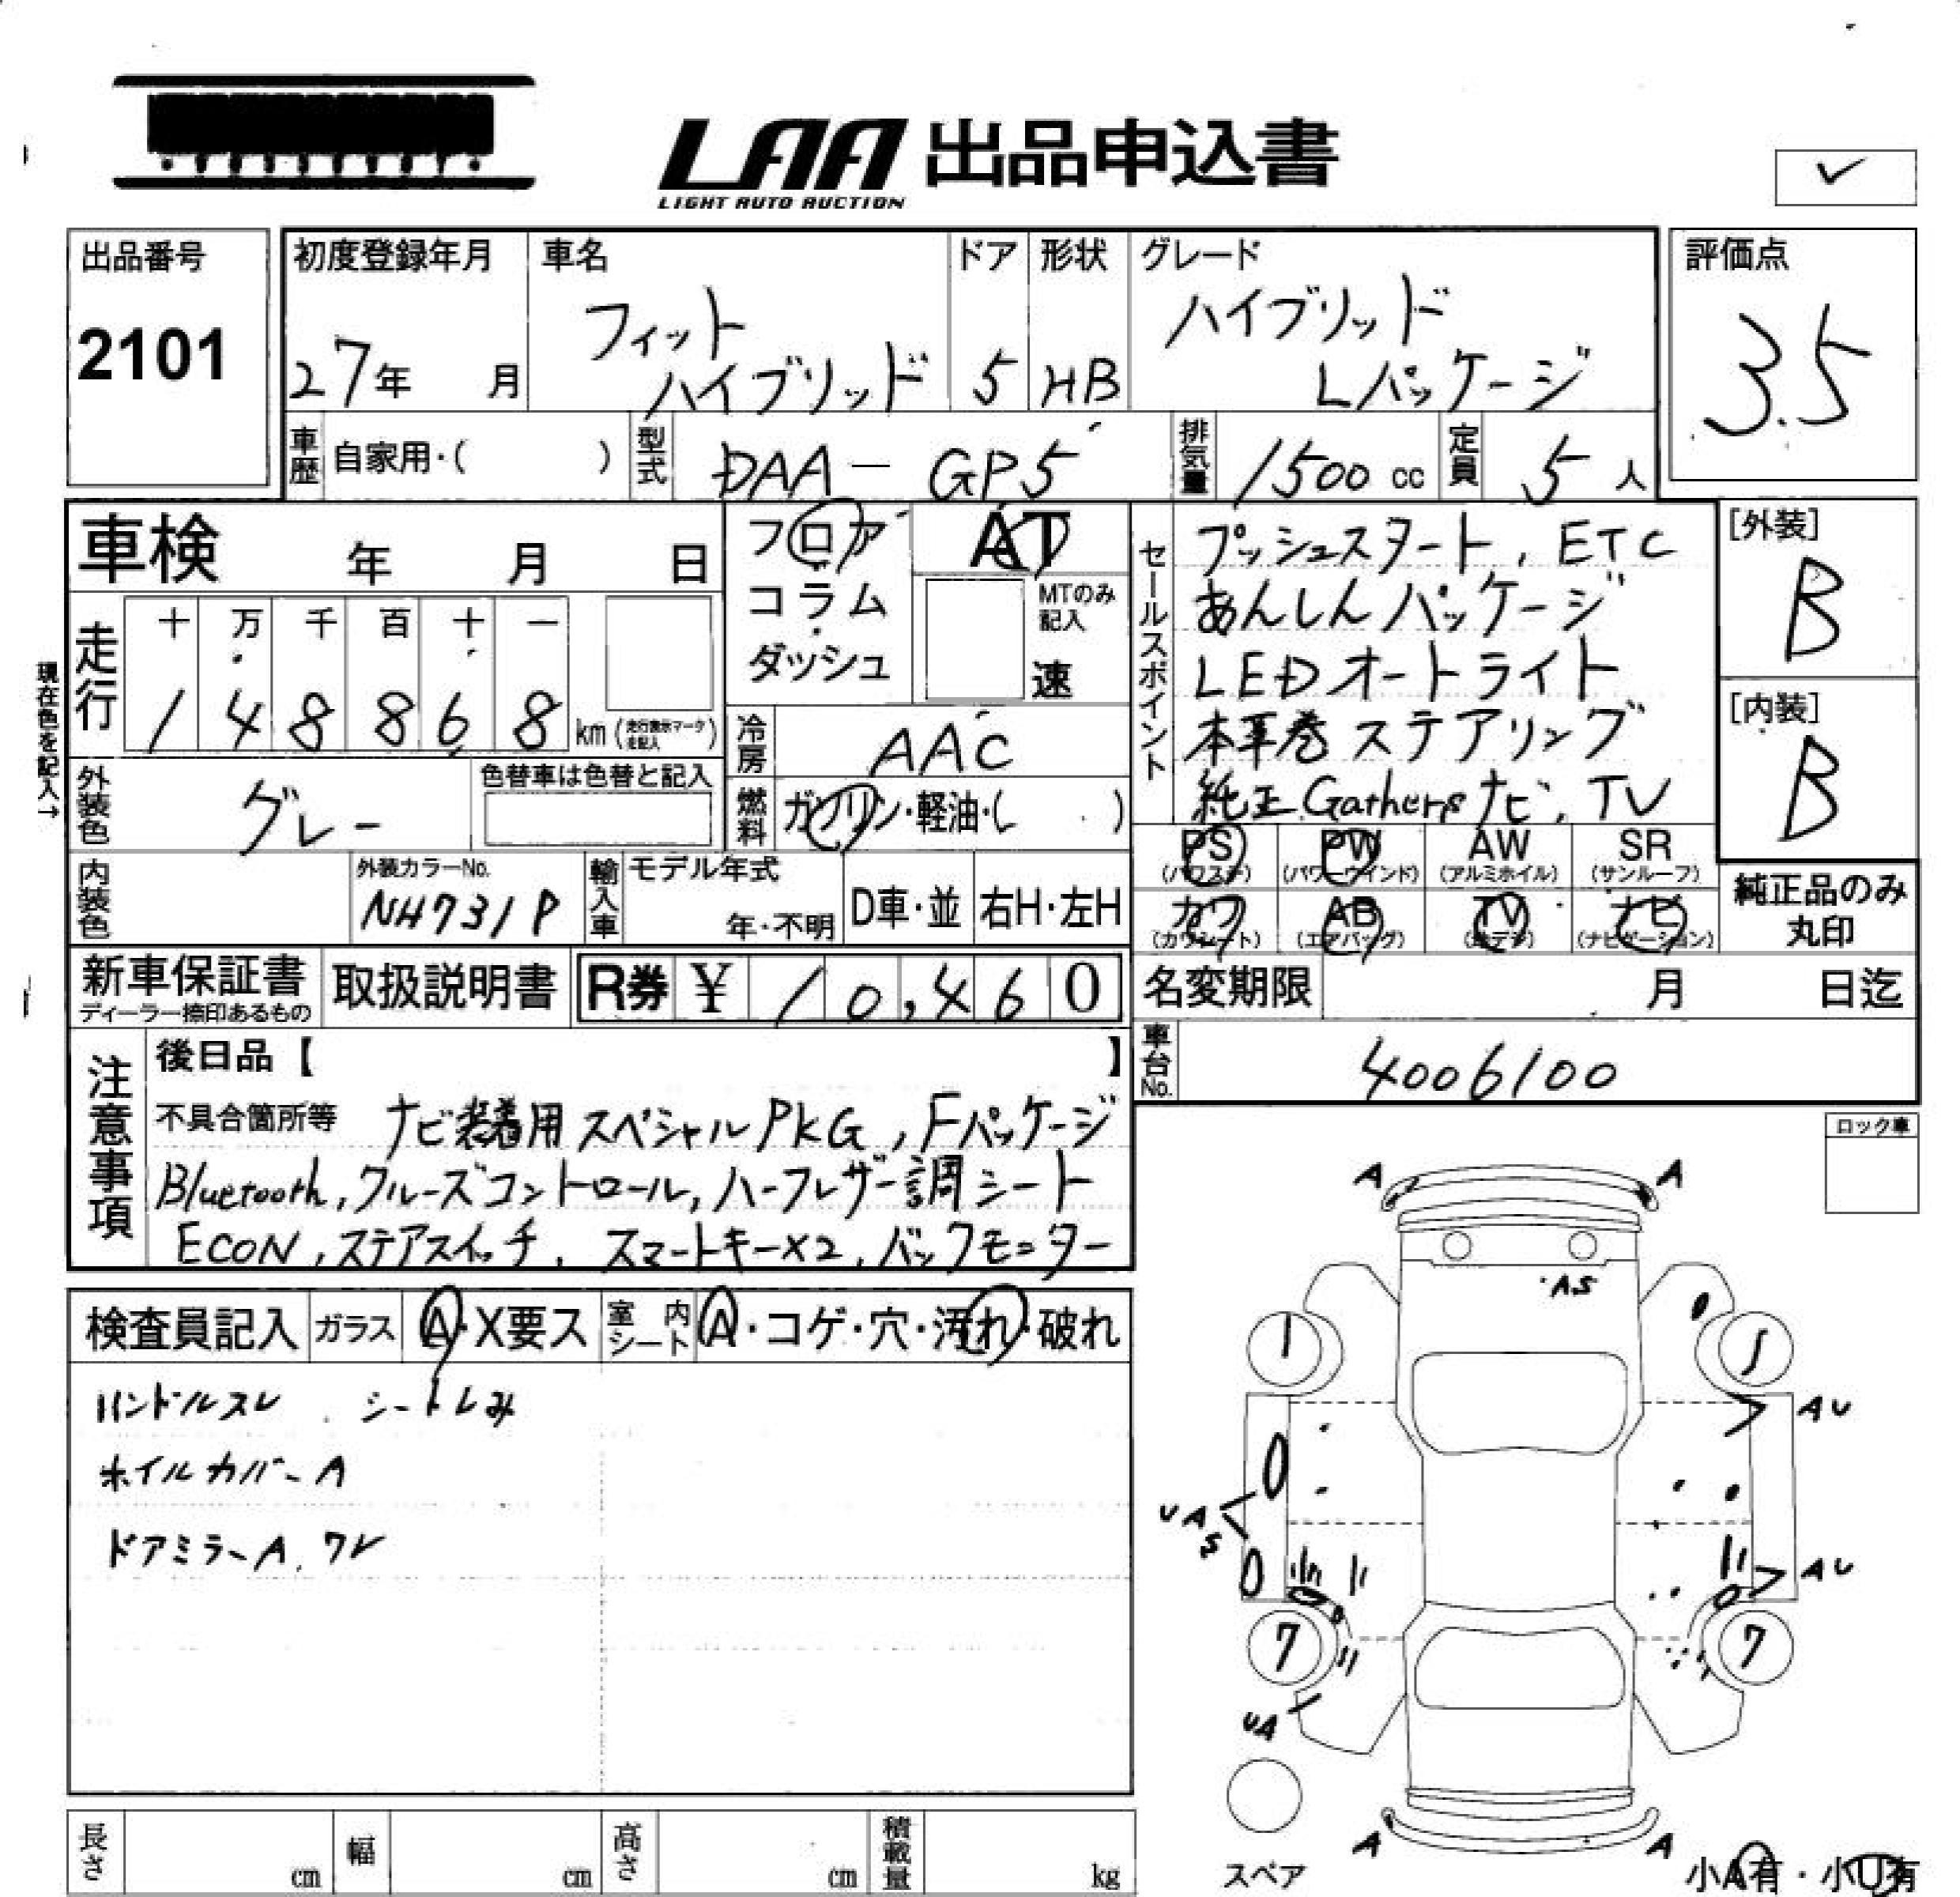 LAA 出品申込書
LIGHT AUTO AUCTION
✓
出品番号
2101
初度登録年月
27年 月
車名
フィット
ハイブリッド
ドア
5
形状
HB
グレード
ハイブリッド
Lパッケージ
評価点
3.5
車歴 自家用・( )
型式 DAA-GP5
排気量 1500 cc
定員 5 人
車検 年 月 日
フロア
コラム
ダッシュ
AT
MTのみ
記入
速
セールスポイント
プッシュスタート, ETC
あんしんパッケージ
LEDオートライト
本革巻ステアリング
純正Gathersナビ, TV
[外装]
B
[内装]
B
現在色を記入→
走行
十 万 千 百 十 一
1 4 8 8 6 8 km (走行表示マーク を記入)
冷房 AAC
外装色 グレー
色替車は色替と記入
燃料 ガソリン・軽油・( )
PS (パワステ)
PW (パワーウインド)
AW (アルミホイル)
SR (サンルーフ)
内装色
外装カラーNo.
NH731P
輸入車
モデル年式
年・不明
D車・並
右H・左H
カワ (カワシート)
AB (エアバッグ)
TV (地デジ)
ナビ (ナビゲーション)
純正品のみ
丸印
新車保証書
ディーラー捺印あるもの
取扱説明書
R券 ¥ 10,460
名変期限 月 日迄
車台No. 4006100
注意事項
後日品【 】
不具合箇所等 ナビ装着用スペシャルPKG, Fパッケージ
Bluetooth, クルーズコントロール, ハーフレザー調シート
ECON, ステアスイッチ, スマートキー×2, バックモニター
ロック車
検査員記入
ガラス A・X要ス
室内シート A・コゲ・穴・汚れ・破れ
ハンドルスレ シートしみ
ホイルカバーA
ドアミラーA, ワレ
A A
AS
AU
UAS
AU
7 7
UA
A A
スペア
小A有・小U有
長さ cm
幅 cm
高さ cm
積載量 kg